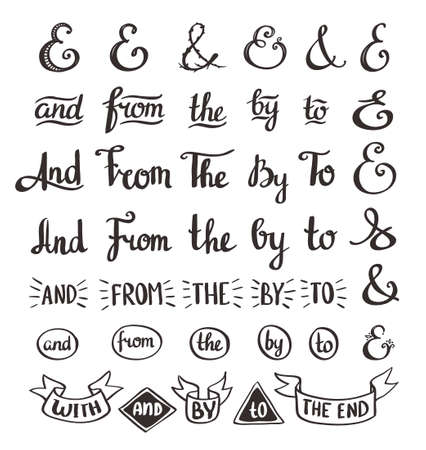 & & & & & &
and from the by to &
And From The By To &
And From the by to &
AND FROM THE BY TO &
and from the by to &
WITH AND BY to THE END